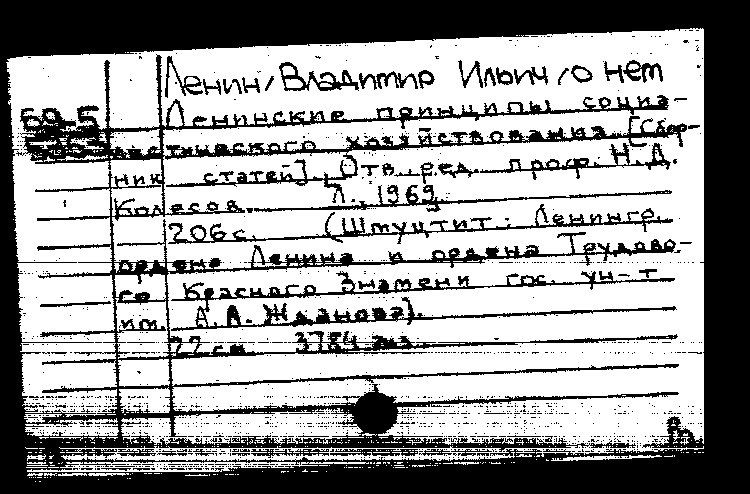 Ленин, Владимир Ильич, о нем
69-5
Ленинские принципы социа-
листического хозяйствования. [Сбор-
ник статей]. Отв. ред. проф. Н. Д.
Колесов. Л., 1969.
206 с. (Штуцтит.: Ленингр.
ордена Ленина и ордена Трудово-
го Красного Знамени гос. ун-т
им. А. А. Жданова).
22 см. 3784 экз.